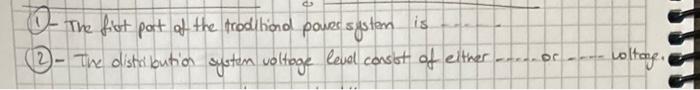 ① - The first part of the traditional power system is ------
② - The distribution system voltage level consist of either ------ or ---- voltage.